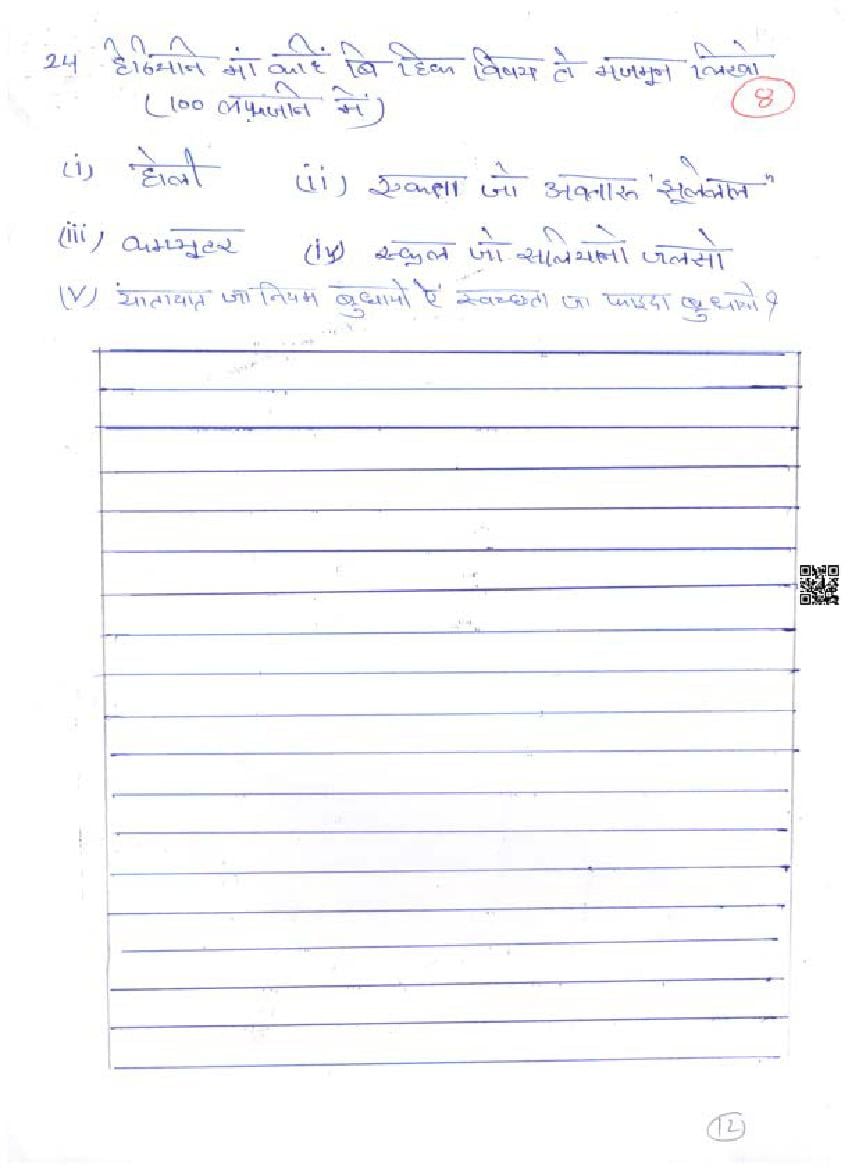 24 हेठियनि मां कंहिं बि हिक विषय ते मजमून लिखो
(100 लफ़्ज़नि में) 8
(i) होली (ii) एकता जो अवतारु "झूलेलाल"
(iii) कम्प्यूटर (iv) स्कूल जो सालियानो जलसो
(V) यातायात जा नियम बुधायो ऐं स्वच्छता जा फाइदा बुधायो?
12